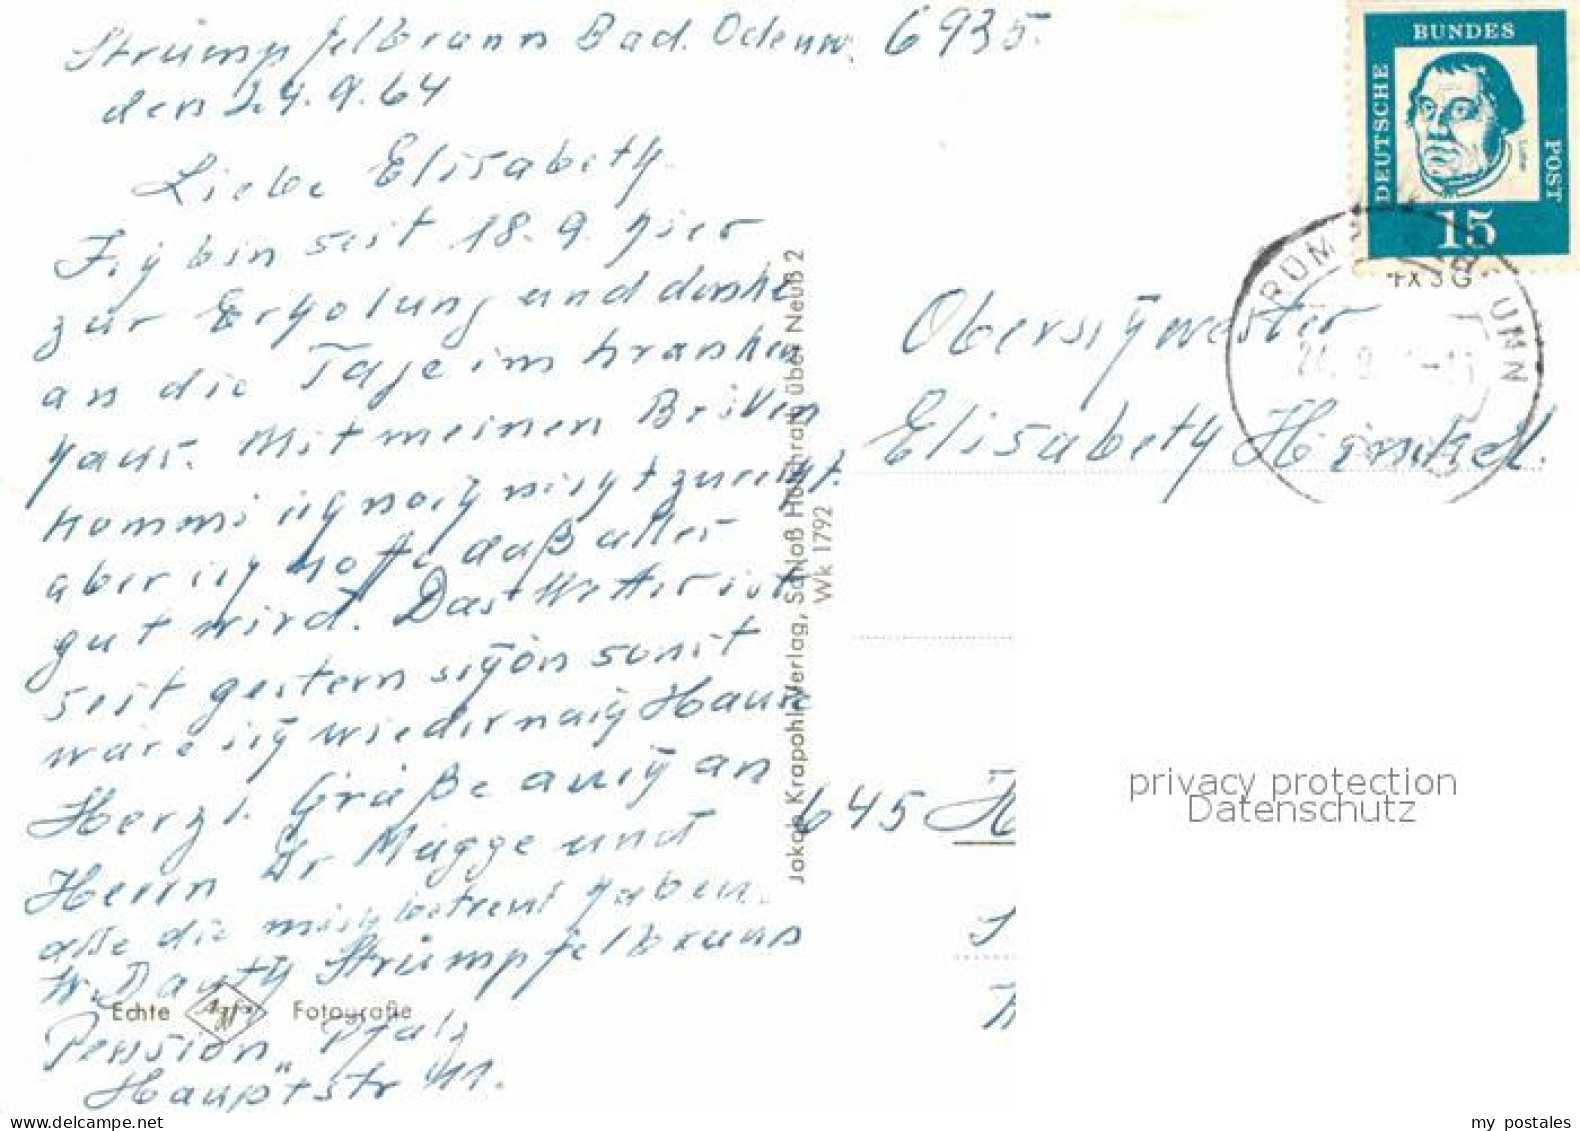 Strümpfelbrunn Bad. Odenw. 6935.
den 24.9.64
Liebe Elisabeth
Ich bin seit 18.9. hier
zur Erholung und denke
an die Tage im Kranken
haus. Mit meinen Brillen
komme ich noch nicht zurecht.
aber ich hoffe daß alles
gut wird. Das Wetter ist
seit gestern schön sonst
wäre ich wieder nach Hause
Herzl. Grüße auch an
Herrn Dr Mügge und
alle die mich betreut haben.
W. Strümpfelbrunn
Pension "Pfalz
Hauptstr 41.
Echte Agfa Fotografie
Jakob Krapohl-Verlag, Schloß Hülchrath über Neuß 2
Wk 1792
DEUTSCHE BUNDES POST
Luther
15
24.9.
Oberschwester
Elisabeth Henkel.
645 H
privacy protection
Datenschutz
my postales